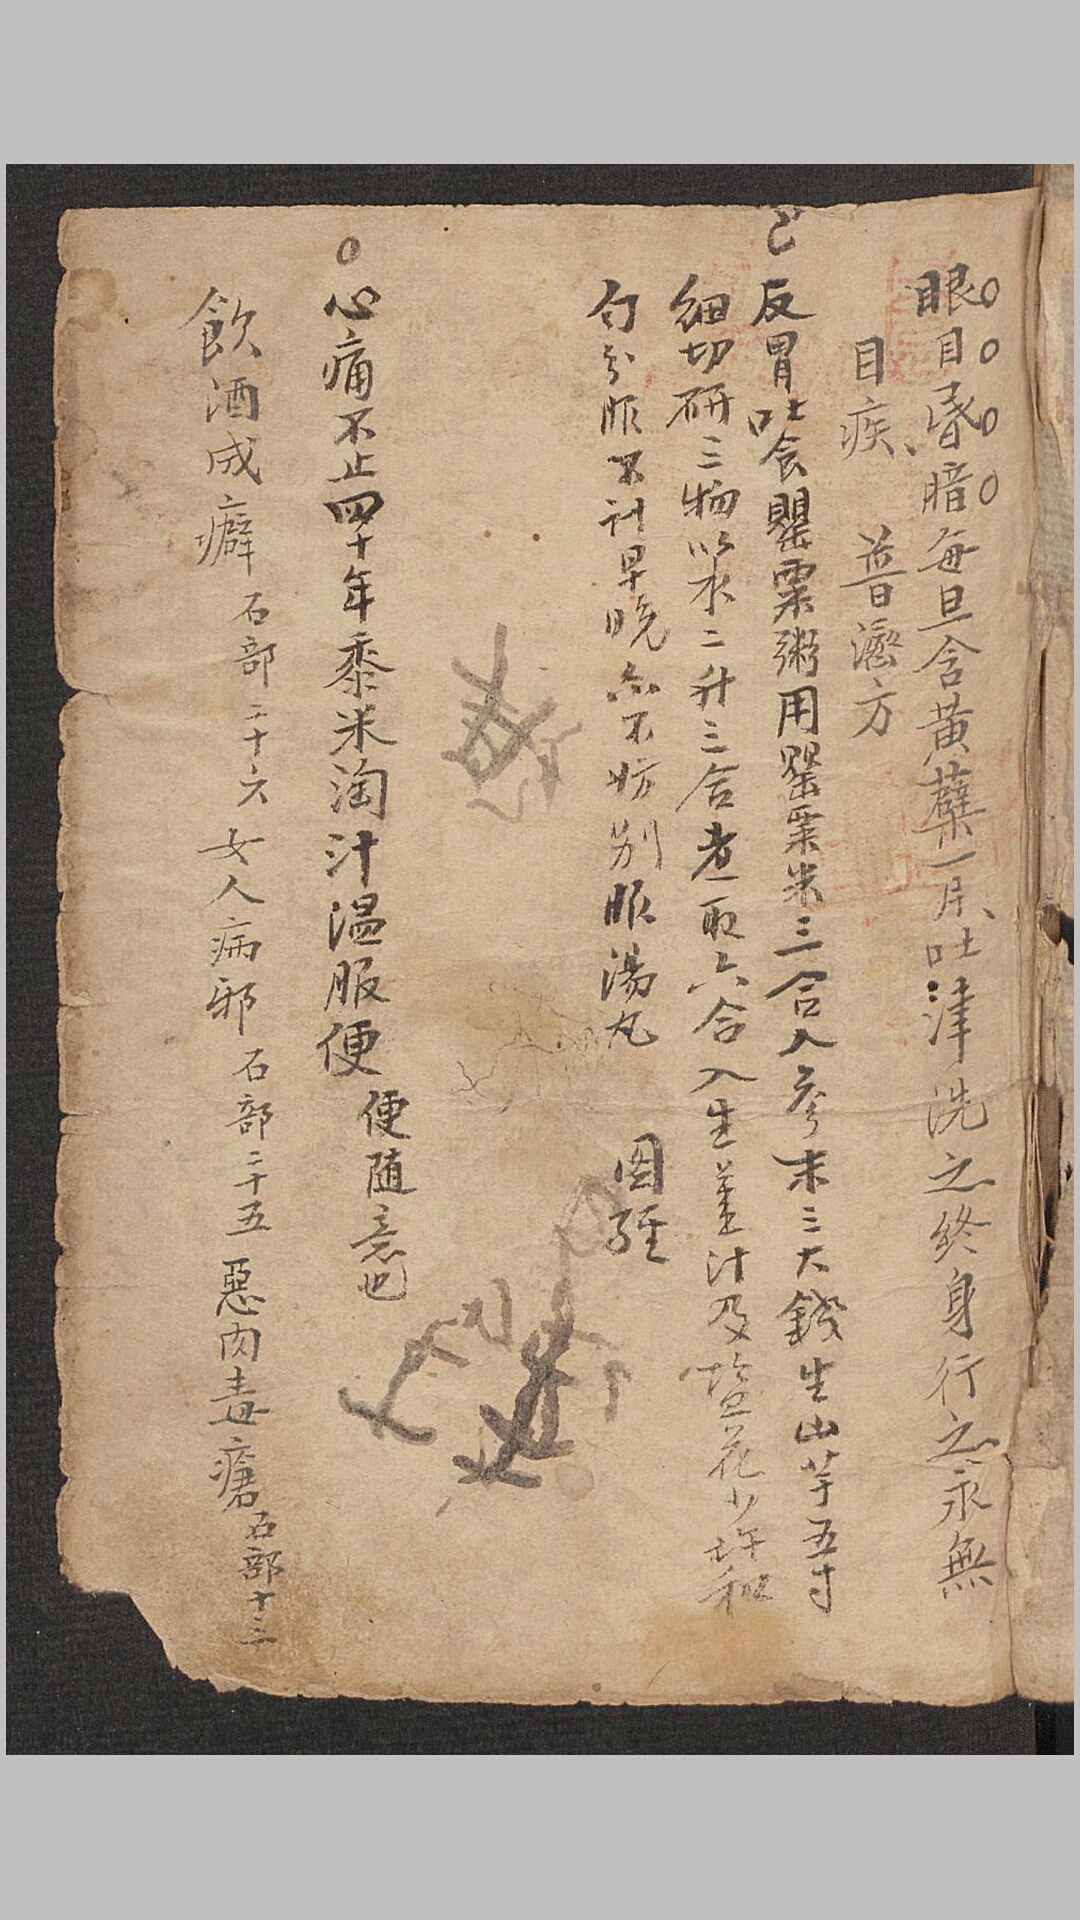 眼目昏暗每旦含黃蘗一爪吐津洗之終身行之永無
目疾 普濟方
已 反胃吐食罌粟粥用罌粟米三合人參末三大錢生山芋五寸
細切研三物以水二升三合煮取六合入生薑汁及塩花少許和
勻分服不計早晩亦不妨別服湯丸 圖經
心痛不止四十年黍米淘汁温服便
便随意也
飲酒成癖 石部二十六 女人病邪 石部二十五 惡肉毒瘡 石部十三